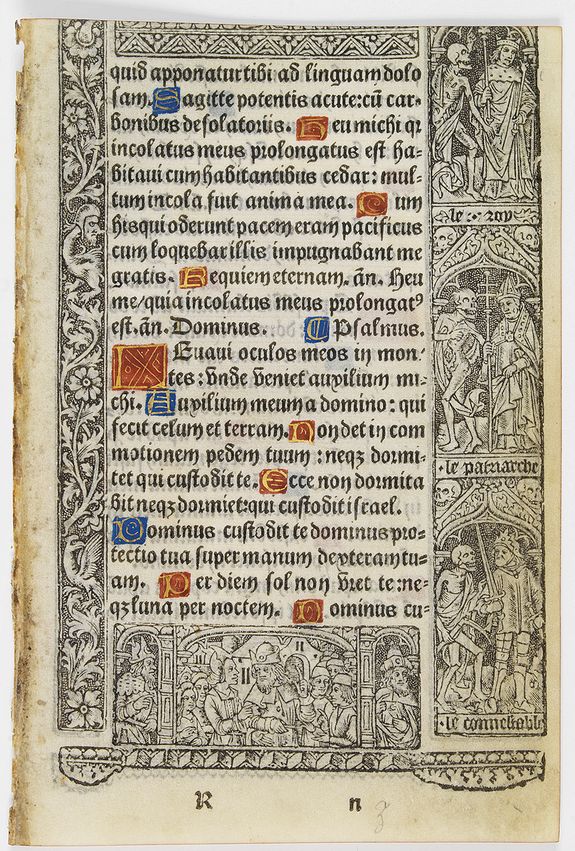 quid apponatur tibi ad linguam dolo
sam. Sagitte potentis acute: cū car-
bonibus desolatoriis. Heu michi qꝛ
incolatus meus prolongatus est ha-
bitaui cum habitantibus cedar: mul-
tum incola fuit anima mea. Cum
his qui oderunt pacem eram pacificus
cum loquebar illis impugnabant me
gratis. Requiem eternam. añ. Heu
me/ quia incolatus meus prolongatꝰ
est. añ. Dominus. Psalmus.
Leuaui oculos meos in mon-
tes: vnde veniet auxilium mi-
chi. Auxilium meum a domino: qui
fecit celum et terram. Non det in com
motionem pedem tuum: neqꝫ dormi-
tet qui custodit te. Ecce non dormita
bit neqꝫ dormiet: qui custodit israel.
Dominus custodit te dominus pro-
tectio tua super manum dexteram tu-
am. Per diem sol non vret te: ne-
qꝫ luna per noctem. Dominus cu-
le roy
le patriarche
le connestable
R n